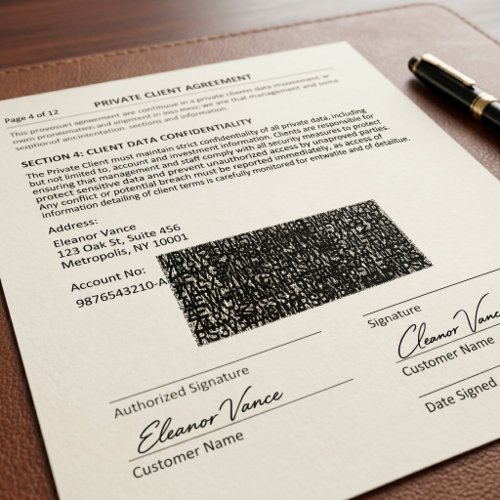 PRIVATE CLIENT AGREEMENT
Page 4 of 12
This provisors agreement are continue in a private clients; data involvement, or
own pronematien; and shipment in less mess; we are that management and some
SECTION 4: CLIENT DATA CONFIDENTIALITY
The Private Client must maintain strict confidentiality of all private data, including
but not limited to, account and investment information. Clients are responsible for
ensuring that management and staff comply with all security measures to protect
protect sensitive data and prevent unauthorized access by unapproved parties.
Any conflict or potential breach must be reported immediately, as access of
information detailing of client terms is carefully monitored for entwatite and of detailtue.
Address:
Eleanor Vance
123 Oak St, Suite 456
Metropolis, NY 10001
Account No:
9876543210-A
Authorized Signature
Eleanor Vance
Customer Name
Signature
Eleanor Vance
Customer Name
Date Signed